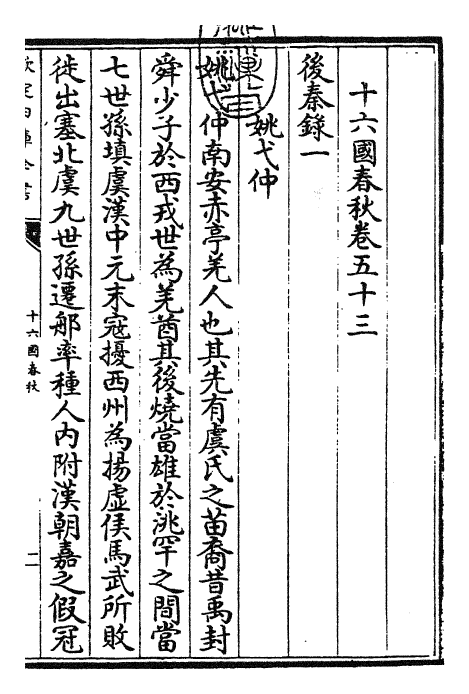 十六國春秋卷五十三
後秦錄一
姚弋仲
姚弋仲南安赤亭羌人也其先有虞氏之苗裔昔禹封
舜少子於西戎世為羌酋其後燒當雄於洮罕之間當
七世孫填虞漢中元末寇擾西州為揚虛侯馬武所敗
徙出塞北虞九世孫遷郍率種人内附漢朝嘉之假冠
欽定四庫全書
十六國春秋
二